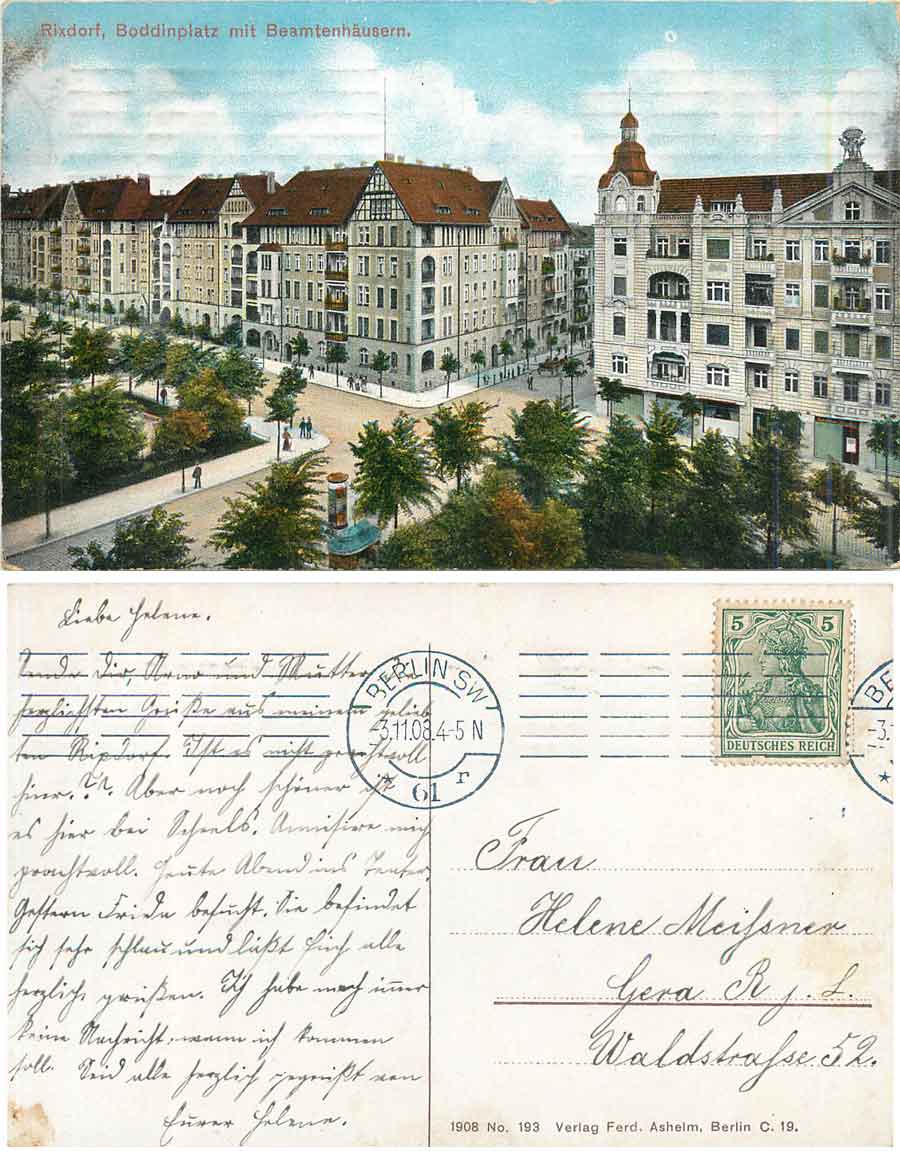 Rixdorf, Boddinplatz mit Beamtenhäusern.
Liebe Helene.
Sende Dir, Arno und Mutter die
herzlichsten Grüße aus meinem gelieb
ten Rixdorf. Ist es nicht prachtvoll
hier. ?. Aber noch schöner ist
es hier bei Scheels. Amisiere mich
prachtvoll. Heute Abend ins Teater.
Gestern Frida besucht. Sie befindet
sich sehr schlau und läßt Euch alle
herzlich grüßen. Ich habe noch immer
keine Nachricht, wann ich kommen
soll. Seid alle herzlich gegrüßt von
Eurer Helene.
BERLIN SW
-3.11.08.4-5 N
* 61 r
5 5
DEUTSCHES REICH
BE
-3.
*
Frau
Helene Meissner
Gera R j. L.
Waldstrasse 52.
1908 No. 193 Verlag Ferd. Ashelm, Berlin C. 19.